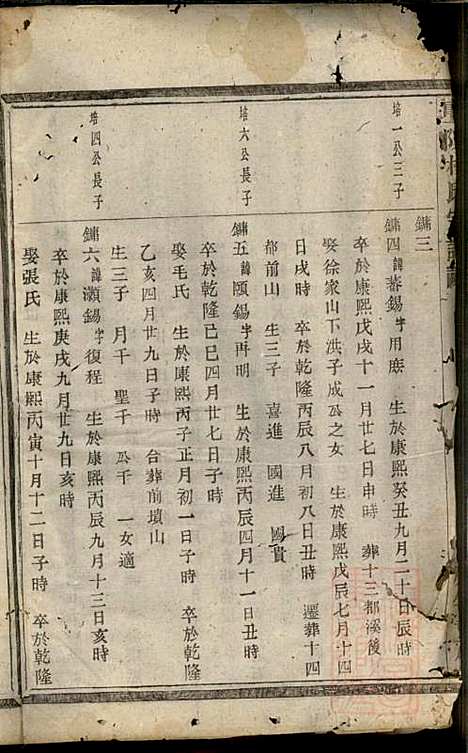 培一公三子
鏞三
鏞四 諱蕃錫 字用庶 生於康熙癸丑九月二十日辰時
卒於康熙戊戌十一月廿七日申時 葬十三都溪後
娶徐家山下洪子成公之女 生於康熙戊辰七月十四
日戌時 卒於乾隆丙辰八月初八日丑時 遷葬十四
都前山 生三子 喜進 國進 國貴
培六公長子
鏞五 諱頤錫 字再明 生於康熙丙辰四月十一日丑時
卒於乾隆己巳四月廿七日子時
娶毛氏 生於康熙丙子正月初一日子時 卒於乾隆
乙亥四月廿九日子時 台葬前墳山
生三子 月千 聖千 公千 一女適
培四公長子
鏞六 諱灝錫 字復程 生於康熙丙辰九月十三日亥時
卒於康熙庚戌九月廿九日亥時
娶張氏 生於康熙丙寅十月十二日子時 卒於乾隆